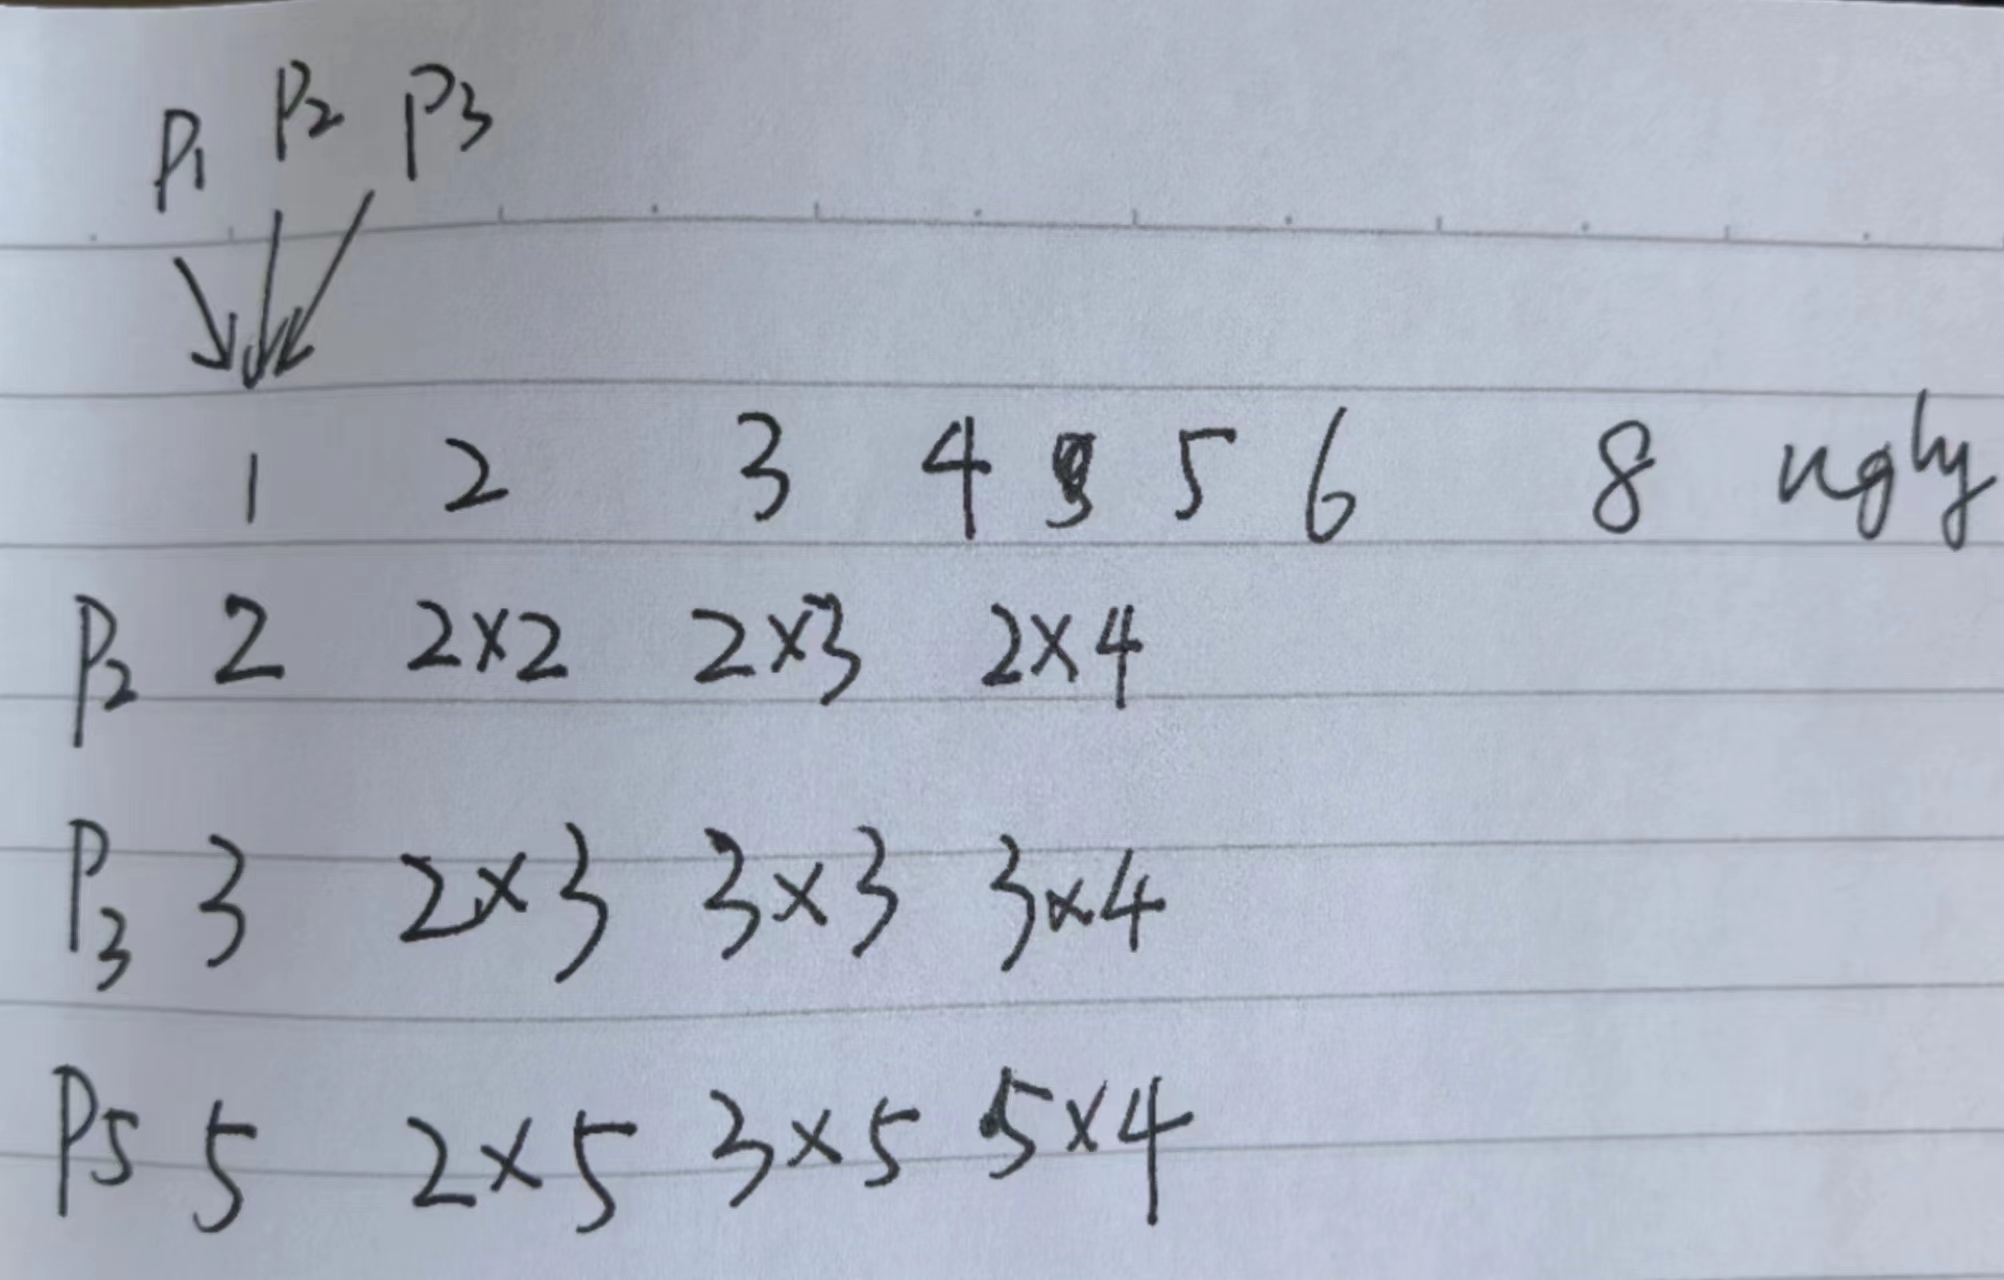 P1 P2 P3
1 2 3 4 5 6 8 ugly
P2 2 2×2 2×3 2×4
P3 3 2×3 3×3 3×4
P5 5 2×5 3×5 5×4